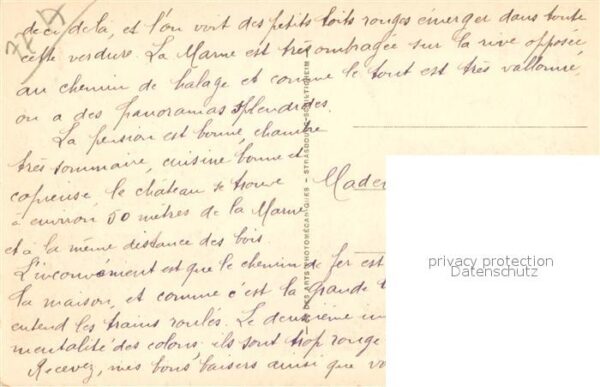 deci delà, et l'on voit des petits toits rouges émerger dans toute
cette verdure. La Marne est très ombragée sur la rive opposée
au chemin de halage et comme le tout est très vallonné,
on a des panoramas splendides.
La pension est bonne, chambre
très sommaire, cuisine bonne et
copieuse, le château se trouve
à environ 50 mètres de la Marne
et à la même distance des bois.
L'inconvénient est que le chemin de fer est
la maison, et comme c'est la grande l
entend les trains roulés. Le deuxième in
mentalité des colons, ils sont trop rouge
Recevez, mes bons baisers ainsi que vo
Madem
DES ARTS PHOTOMÉCANIQUES - STRASBOURG-SCHILTIGHEIM
privacy protection
Datenschutz